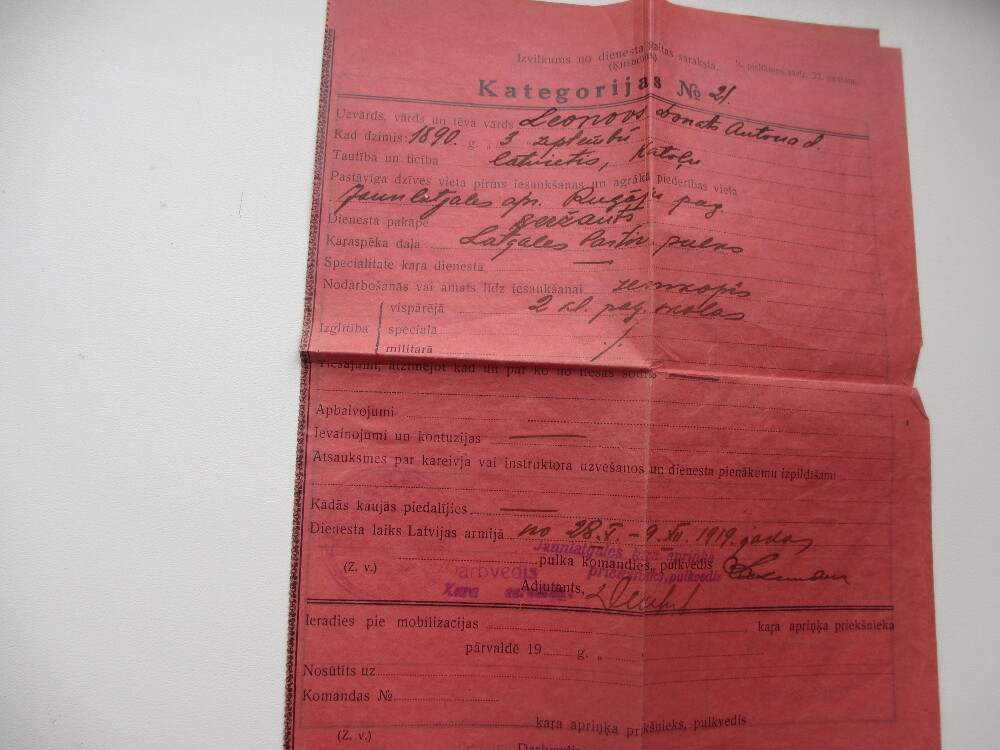 Izvilkums no dienesta gaitas saraksta.
Kategorijas № 21.
Uzvārds, vārds un tēva vārds Leonovs Donats Antona d.
Kad dzimis: 1890. g. „ 3
Tautība un ticība latvietis, Katoļu
Pastāvīga dzīves vieta pirms iesaukšanas un agrākā piederības vieta
Jaunlatgales apr. Rugāju pag.
Dienesta pakāpe seržants
Kaŗaspēka daļa Latgales Partiz. pulks
Specialitate kaŗa dienestā —
Nodarbošanās vai amats līdz iesaukšanai zemkopis
Izglītība
vispārējā 2 kl. pag. skolas
speciala
militarā
Tiesājumi, atzīmējot kad un par ko no tiesas sodīts —
Apbalvojumi
Ievainojumi un kontuzijas —
Atsauksmes par kareivja vai instruktora uzvešanos un dienesta pienākumu izpildīšanu
Kādās kaujās piedalījies —
Dienesta laiks Latvijas armijā no 28.X. – 9.XII. 1919. gadam
Jaunlatgales kara apriņķa
pulka komandieŗis, pulkvedis
priekšnieks, pulkvedis
(Z. v.)
Darbvedis
Adjutants,
Kara
Ieradies pie mobilizacijas kaŗa apriņķa priekšnieka
pārvaldē 19 g. „
Nosūtīts uz
Komandas №
kaŗa apriņķa prikšnieks, pulkvedis
(Z. v.)
Darbvedis